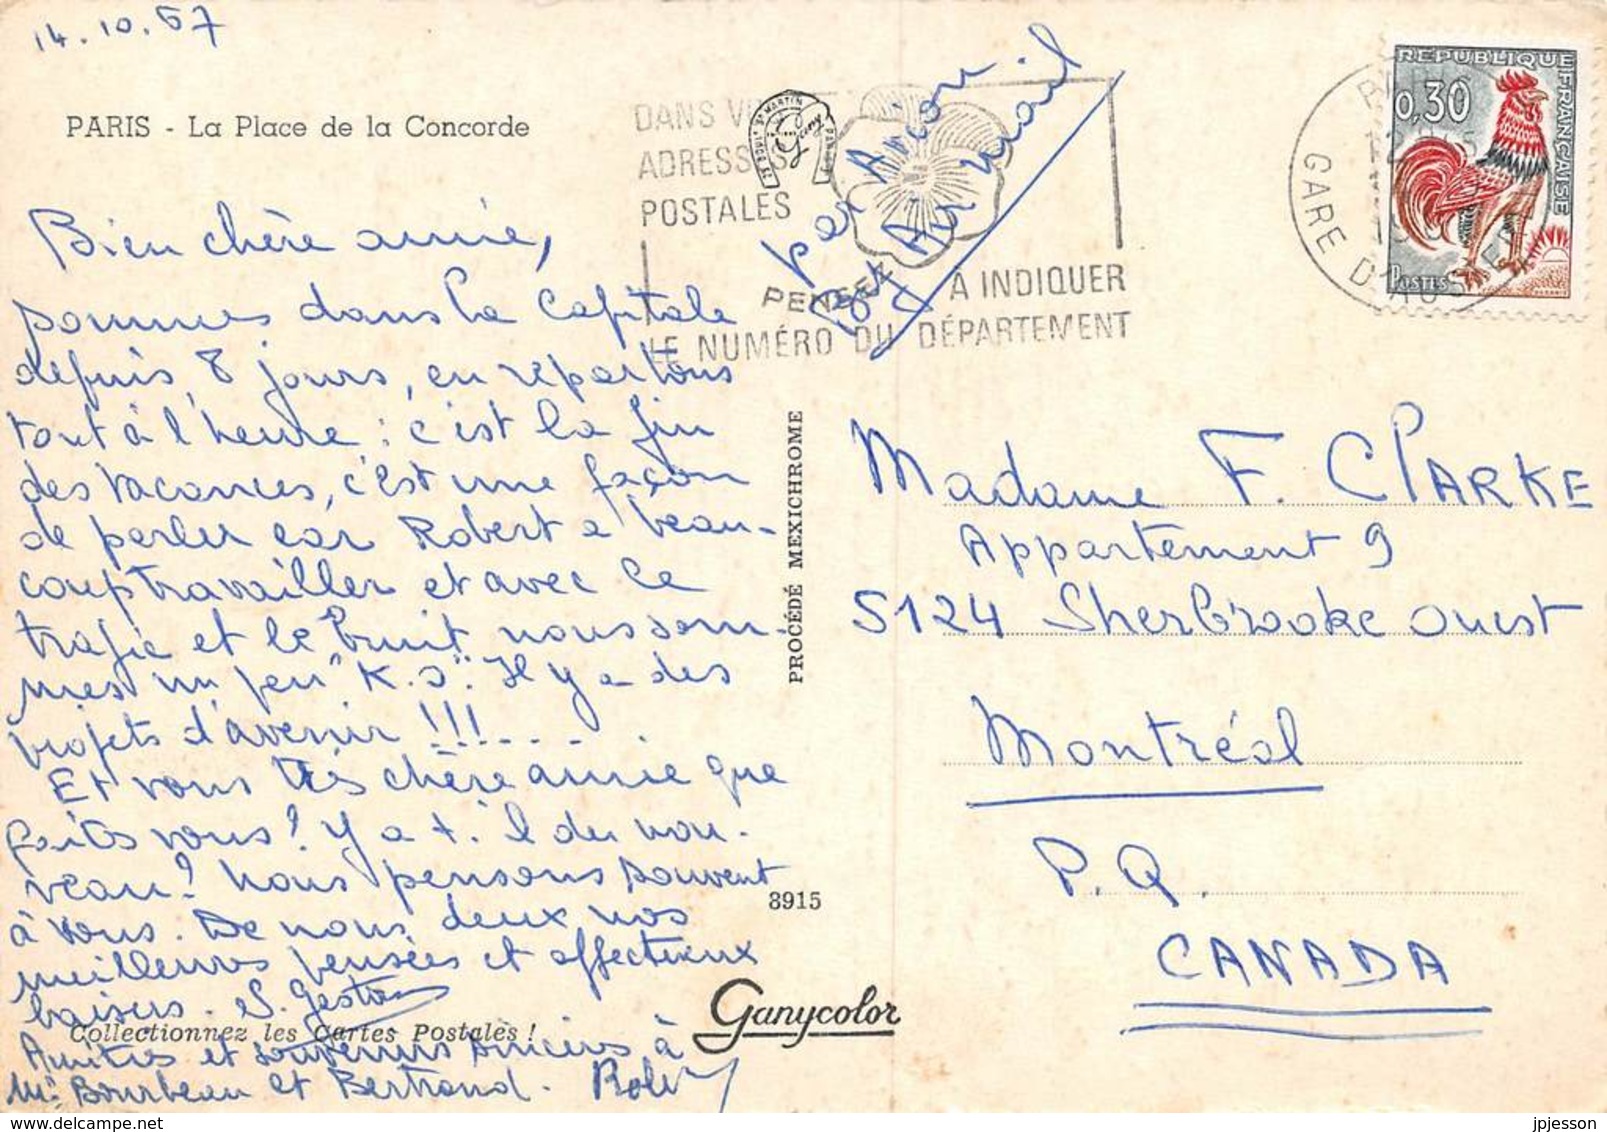 14.10.67
PARIS - La Place de la Concorde
Bien chère amie,
sommes dans la Capitale
depuis 8 jours, en repartons
tout à l'heure : c'est la fin
des vacances, c'est une façon
de parler car Robert a beau-
coup travailler et avec le
trafic et le bruit nous som-
mes un peu "K.O". Il y a des
projets d'avenir !!! ....
Et vous très chère amie que
faites vous ? Y a t. il du nou-
veau ? Nous pensons souvent
à vous. De nous deux nos
meilleures pensées et affectueux
baisers. S.
Collectionnez les Cartes Postales !
Amitiés et souvenirs sincères à
Mr Bourbeau et Bertrand.
DANS
ADRESSES
POSTALES
PENSEZ À INDIQUER
LE NUMÉRO DU DÉPARTEMENT
Par Avion
Par Air Mail
REPUBLIQUE FRANÇAISE
0,30
POSTES
GARE D'AUSTERLITZ
PROCÉDÉ MEXICHROME
8915
Ganycolor
Madame F. CLARKE
Appartement 9
5124 Sherbrooke Ouest
Montréal
P.Q.
CANADA
jpjesson